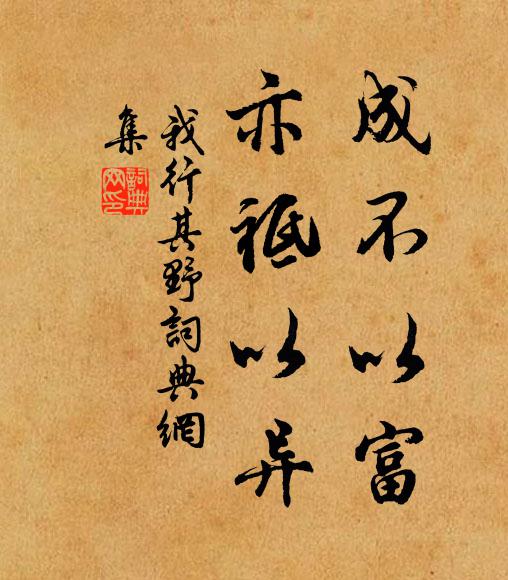 成不以富
亦祗以异
我行其野詞典網
集
詞典
网印